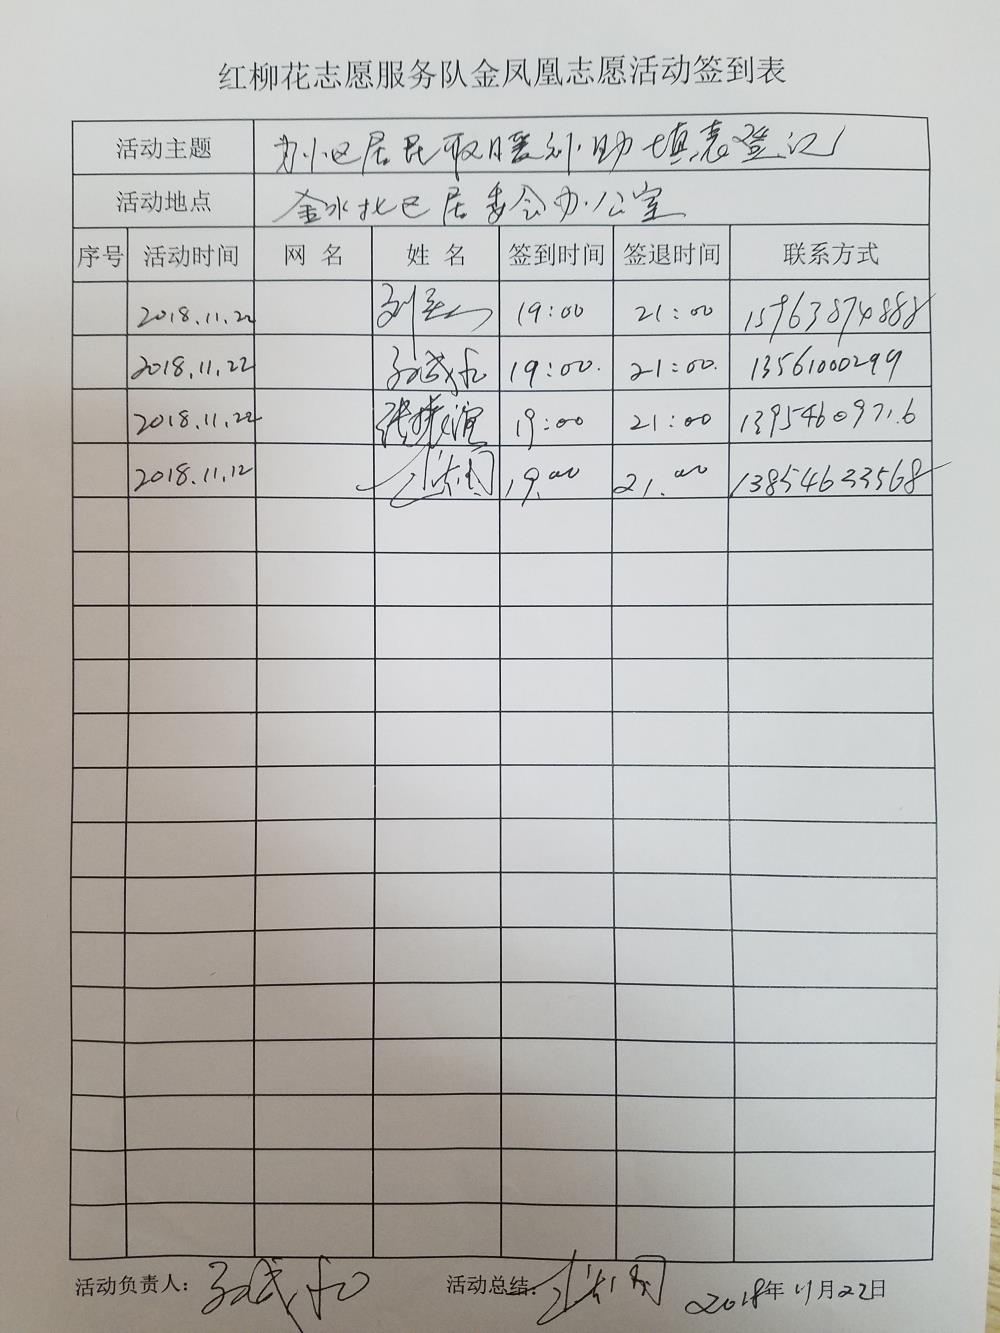 红柳花志愿服务队金凤凰志愿活动签到表
活动主题 为小区居民取暖补助填表登记
活动地点 金水北区居委会办公室
序号 活动时间 网 名 姓 名 签到时间 签退时间 联系方式
2018.11.22 19:00 21:00 15963874888
2018.11.22 19:00. 21:00. 13561000299
2018.11.22 19:00 21:00 13954609716
2018.11.12 19.00 21.00 13854633568
活动负责人: 活动总结: 2018年11月22日